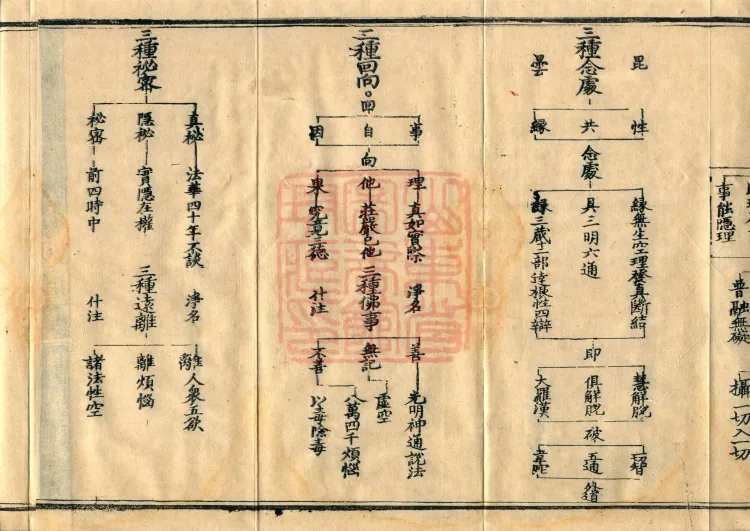 事能隱理
普融無礙
攝一切入一切
三種念處
毘
曇
性
共
緣
念處
緣無生空理發真斷結
具三明六通
緣三藏十二部達根性四辯
即
慧解脫
俱解脫
大羅漢
破
一切智
五通
韋陀
外道
三種回向。
回
事
自
因
向
理 真如實際
他 莊嚴己他
果 究竟三德
三種佛事
淨名
什注
善 光明神通說法
無記 虛空
八萬四千煩惱
不善 以毒除毒
三種秘密
真秘 法華四十年不談
隱秘 實隱在權
秘密 前四時中
三種遠離
淨名
什注
離人衆五欲
離煩惱
諸法性空